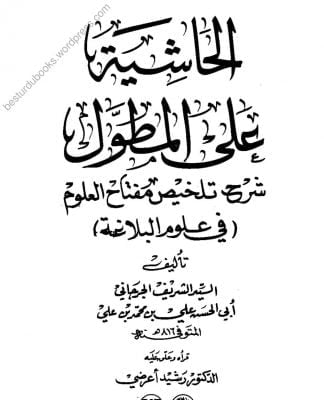 besturdubooks.wordpress.com
الحاشية
على المطول
شرح تلخيص مفتاح العلوم
(في علوم البلاغة)
تأليف
السيد الشريف الجرجاني
أبي الحسن علي بن محمد بن علي
المتوفى ٨١٦ هـ
قرأه وعلق عليه
الدكتور رشيد أعرضي